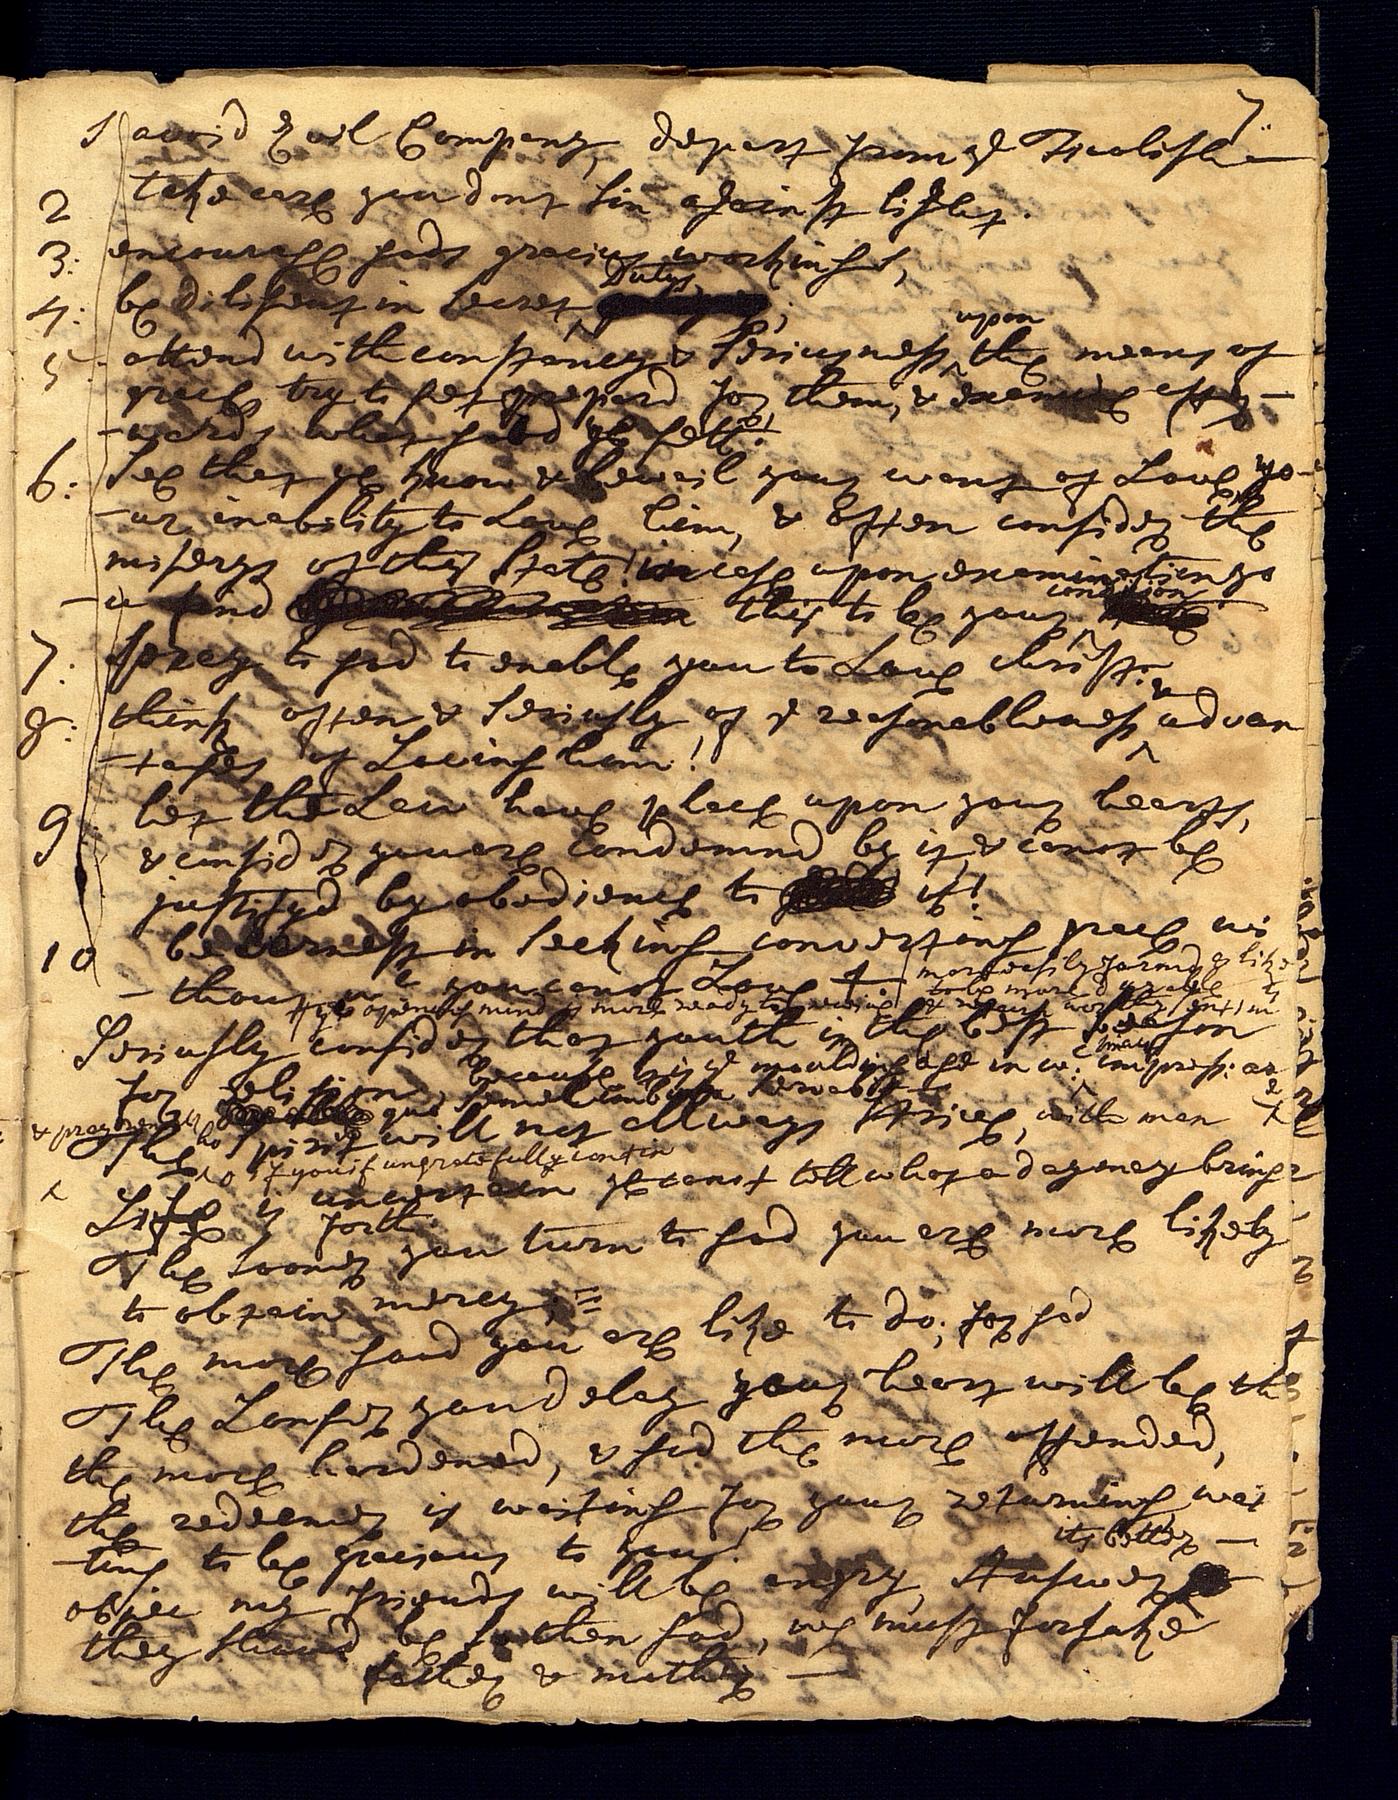 7.
1 avoid Evil Company, depart from ye Foolish
2 take care you dont sin against light.
3: encourage gods gracious workings,
4: be diligent in secret Dutys,
5 attend with constancy & Seriousness upon the means of
grace try to get prepard for them, & examine after-
-wards what good ye gett:
6: See that ye know & bewail your want of Love, yo-
-ur inability to Love him, & often consider the
misery of this State! in case upon examination yo
-u find this to be your condition
7: pray to god to enable you to Love christ.
8: think often & Seriously of ye reasonableness & advan
-tages of Loving him!
9 let the Law have place upon your hearts,
& consider you are Condemnd by it & canot be
justifyd by obedience to it!
10 be earnest in seeking converting grace wi
-thout wc you canot Love
more easily formd & like
to be more durable
ye opener of mind & more ready to receive & retain
Seriously consider that youth is the best season
for religion, because its ye moulding age in wc impress: are
The Spirit will not allways Strive, with men
so if you if ungratefully contin
Life is uncertain ye canot tell what a day may bring
forth.
The sooner you turn to god you are more likely
to obtain mercy,
The more good you are like to do, for god
The Longer you delay your heart will be the
the more hardened, & god the more offended,
the redeemer is waiting for your returning wai
-ting to be gracious to you.
its better
objec my friends will be angry, Answer
they shoud be so then god, we must forsake
father & mother —